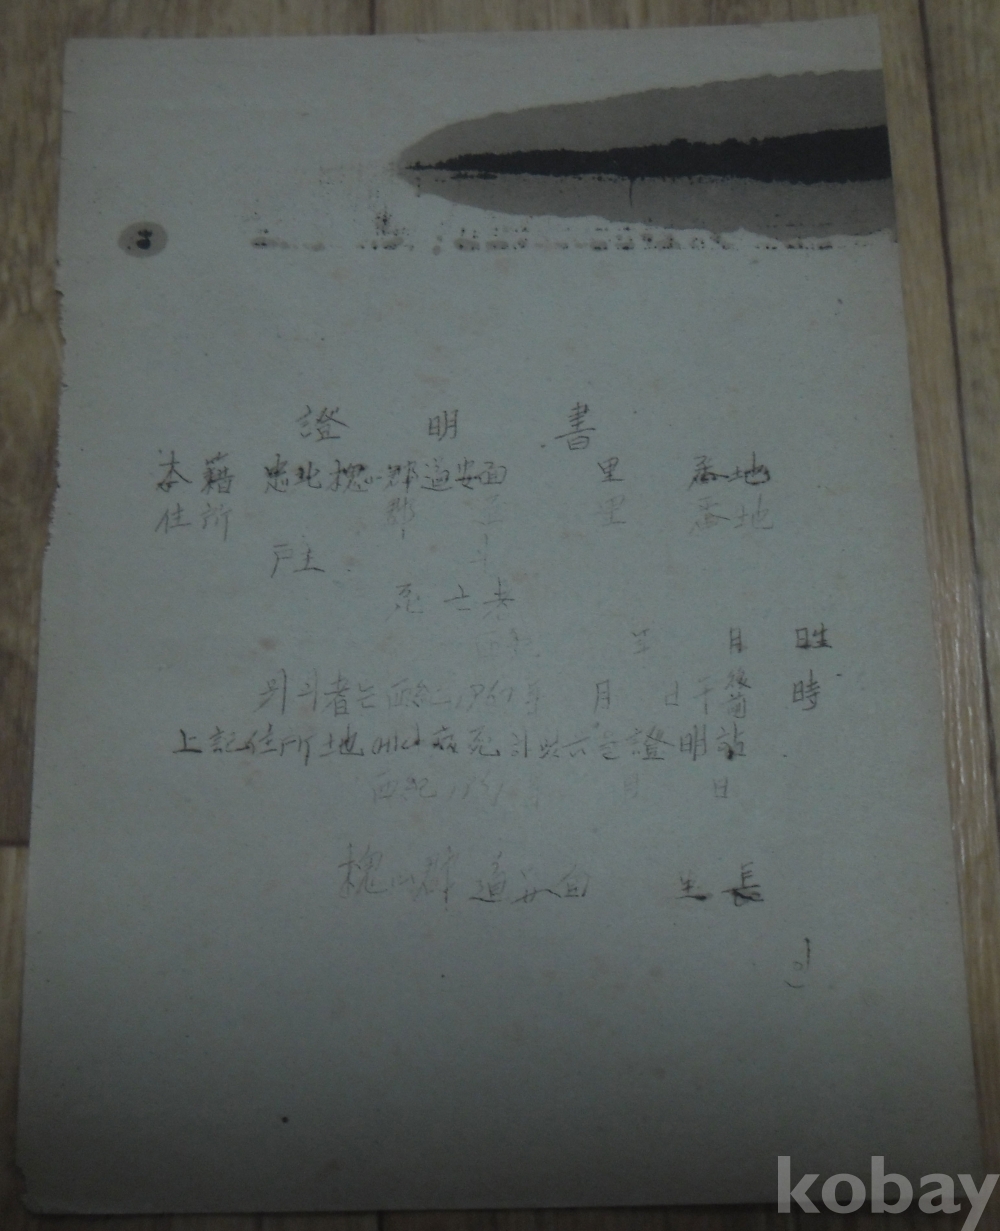 證 明 書
本籍 忠北槐山郡道安面 里 番地
住所 郡 面 里 番地
戸主
死亡者
西紀 年 月 日生
者는 西紀 196 年 月 日 午 後前 時
上記住所地 에서 病死 證明
西紀 19 年 月 日
槐山郡 道安面 里 長
인
kobay